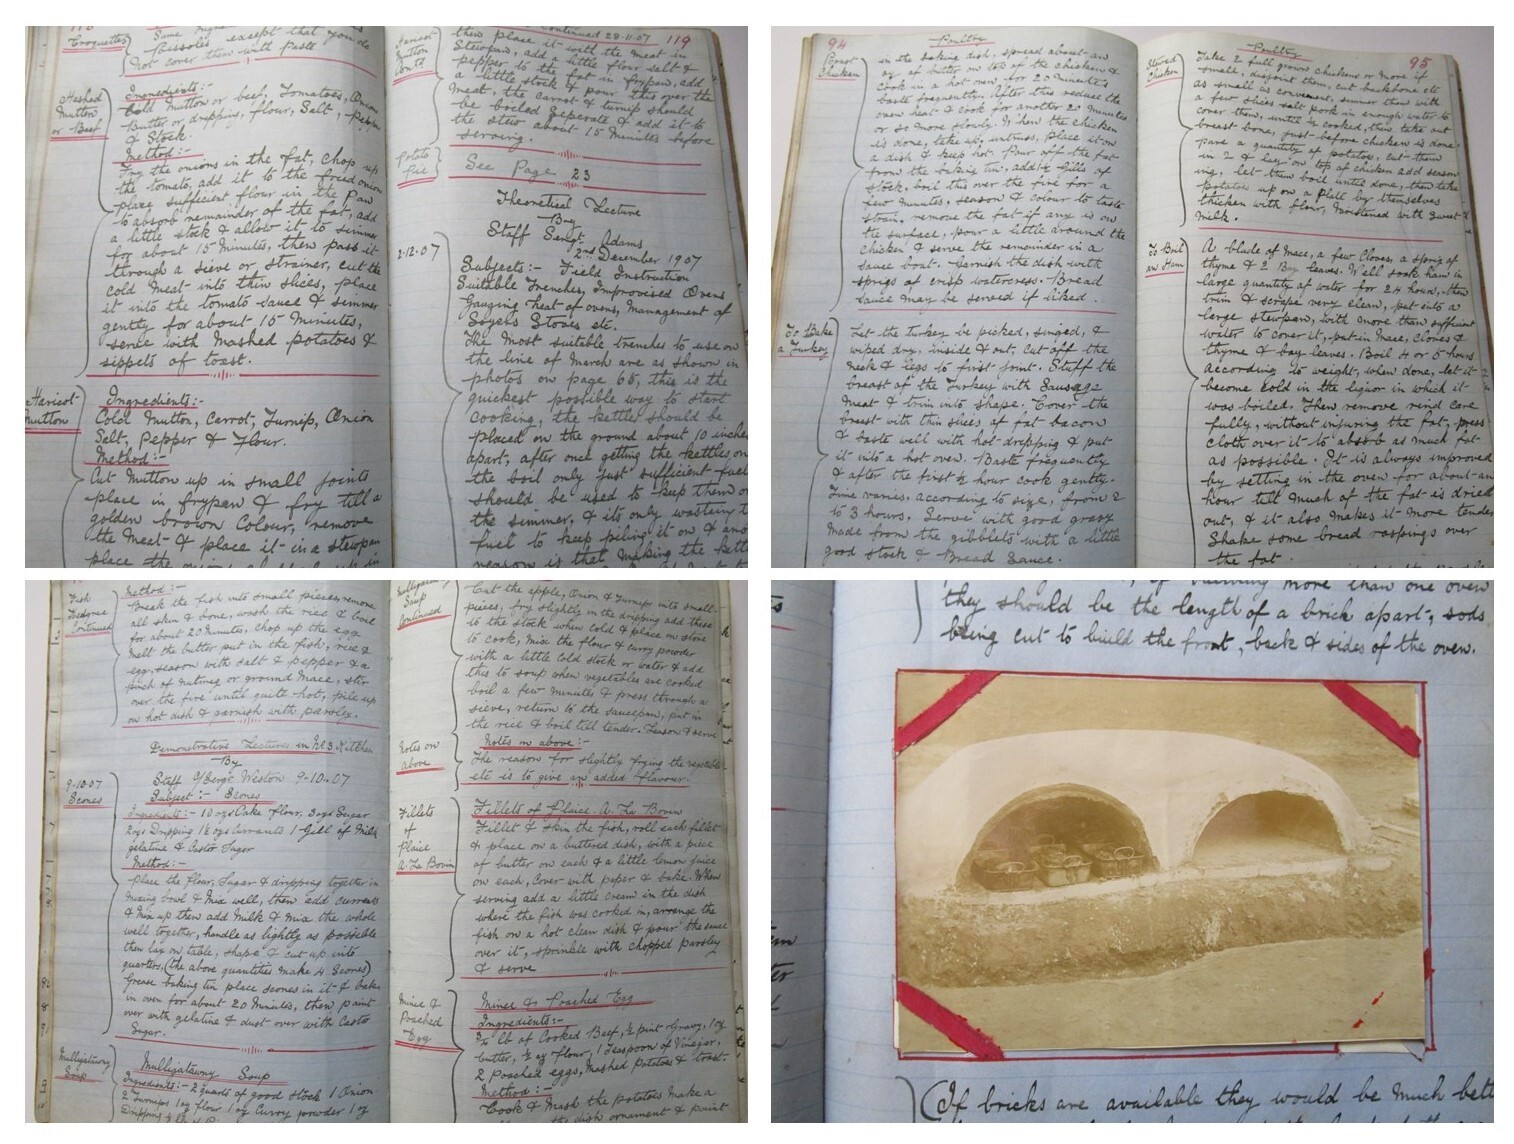 Croquettes
Same
Rissoles except that you do
not cover them with Paste
Hashed
Mutton
or Beef
Ingredients:-
Cold Mutton or beef, Tomatoes, Onion
Butter or dripping, flour, Salt, Pepper
& Stock.
Method:-
Fry the onions in the fat, chop up
the tomato, add it to the fried onion
place sufficient flour in the Pan
to absorb remainder of the fat, add
a little stock & allow it to simmer
for about 15 Minutes, then pass it
through a sieve or strainer, cut the
cold Meat into thin slices, place
it into the tomato sauce & simmer
gently for about 15 Minutes,
serve with Mashed Potatoes &
sippets of toast.
Haricot
Mutton
Ingredients:-
Cold Mutton, Carrot, Turnip, Onion
Salt, Pepper & Flour.
Method:-
Cut Mutton up in small joints
place in frypan & fry till a
golden brown Colour, remove
the Meat & place it in a stewpan
place the
Continued 28.11.07 119
Haricot
Mutton
Contd
then place it with the meat in
Stewpan, add a little flour salt &
pepper to the fat in frypan, add
a little stock & pour this over the
meat, the carrot & turnip should
be boiled Seperate & add it to
the stew about 15 Minutes before
serving.
Potato
Pie
See Page 23
Theoretical Lecture
By
Staff Sergt. Adams
2nd December 1907
2.12.07
Subjects:- Field Instruction
Suitable Trenches, Improvised Ovens
Gauging heat of ovens, Management of
Soyers Stoves etc.
The Most suitable trenches to use on
the line of March are as shown in
photos on page 65, this is the
quickest possible way to start
cooking, the kettles should be
placed on the ground about 10 inches
apart, after once getting the kettles on
the boil only just sufficient fuel
should be used to keep them on
the simmer, & its only wasting
fuel to keep piling it on &
reason is that making the
94
Poultry
Roast
Chicken
in the baking dish, spread about an
oz of butter on top of the chicken &
cook in a hot oven for 20 minutes
baste frequently. After this reduce the
oven heat & cook for another 20 Minutes
or so more slowly. When the chicken
is done, take up, untruss, place it on
a dish & keep hot. Pour off the fat
from the baking tin, add 1½ gills of
stock, boil this over the fire for a
few minutes, season & colour to taste
strain, remove the fat if any is on
the surface, pour a little around the
chicken & serve the remainder in a
sauce boat. Garnish the dish with
sprigs of crisp watercress. Bread
sauce may be served if liked.
To Bake
a Turkey
Let the turkey be picked, singed, &
wiped dry, inside & out, cut off the
neck & legs to first joint. Stuff the
breast of the Turkey with Sausage
meat & trim into shape. Cover the
breast with thin slices of fat bacon
& baste well with hot dripping & put
it into a hot oven. Baste frequently
& after the first ½ hour cook gently.
Time varies, according to size, from 2
to 3 hours. Serve with good gravy
Made from the gibblets with a little
good stock & Bread Sauce.
Poultry
95
Stewed
Chicken
Take 2 full grown chickens or more if
small, disjoint them, cut backbone etc
as small as convenient, simmer them with
a few slices salt pork in enough water to
cover them, until ½ cooked, then take out
breast bone, just before chicken is done,
pare a quantity of potatoes, cut them
in 2 & lay on top of chicken add season
ing, let them boil until done, then take
potatoes up on a Plate by themselves
thicken with flour, moistened with sweet
Milk.
To Boil
an Ham
A blade of Mace, a few Cloves, a sprig of
thyme & 2 Bay leaves. Well soak ham in
large quantity of water for 24 hours, then
trim & scrape very clean, put into a
large stewpan, with more than sufficient
water to cover it, put in Mace, Cloves &
thyme & bay leaves. Boil 4 or 5 hours
according to weight, when done, let it
become cold in the liquor in which it
was boiled. Then remove rind care
fully, without injuring the fat, press
cloth over it to absorb as much fat
as possible. It is always improved
by setting in the oven for about an
hour till much of the fat is dried
out, & it also makes it more tender
Shake some bread raspings over
the fat.
Fish
Kedgree
Continued
Method:-
Break the fish into small pieces, remove
all skin & bone, wash the rice & boil
for about 20 Minutes, chop up the egg
melt the butter put in the fish, rice &
egg, season with salt & pepper & a
pinch of nutmeg or ground Mace, stir
over the fire until quite hot, pile up
on hot dish & garnish with parsley.
Demonstrative Lectures in No 3 Kitchen
By
Staff Q/Sergt Weston 9-10-07
9-10-07
Scones
Subject:- Scones
Ingredients:- 10 ozs Cake flour, 3 ozs Sugar
2 ozs Dripping 1½ ozs Currants 1 Gill of Milk
gelatine & Castor Sugar
Method:-
Place the flour, Sugar & dripping together in
mixing bowl & Mix well, then add currants
& mix up then add Milk & mix the whole
well together, handle as lightly as possible
then lay on table, shape & cut up into
quarters, (the above quantities make 4 Scones)
Grease baking tin place scones in it & bake
in oven for about 20 Minutes, then paint
over with gelatine & dust over with Castor
Sugar.
Mulligatawny
Soup
Mulligatawny Soup
Ingredients:- 2 quarts of good stock 1 Onion
2 Turnips 1 oz flour 1 oz Curry powder 1 oz
Dripping
Mulligatawny
Soup
Continued
Cut the apple, Onion & Turnips into small
pieces, fry slightly in the dripping add these
to the stock when cold & place on stove
to cook, mix the flour & curry powder
with a little cold stock or water & add
this to soup when vegetables are cooked
boil a few minutes & press through a
sieve, return to the saucepan, put in
the rice & boil till tender. Season & serve
Notes on
above
Notes on above:-
The reason for slightly frying the vegetable
etc is to give an added flavour.
Fillets
of
Plaice
A. La Bovin
Fillets of Plaice. A. La Bovin
Fillet & skin the fish, roll each fillet
& place on a buttered dish, with a piece
of butter on each & a little lemon juice
on each, Cover with paper & bake. When
serving add a little cream in the dish
where the fish was cooked in, arrange the
fish on a hot clean dish & pour the sauce
over it, sprinkle with chopped parsley
& serve
Mince &
Poached
Egg
Mince & Poached Egg
Ingredients:-
¾ lb of Cooked Beef, ½ pint Gravy, 1 oz
butter, ½ oz flour, 1 Teaspoon of Vinegar,
2 Poached eggs, Mashed Potatoes & toast.
Method:-
Cook & Mash the potatoes make a
the dish ornament & paint
more than one oven
they should be the length of a brick apart, sods
being cut to build the front, back & sides of the oven.
If bricks are available they would be much